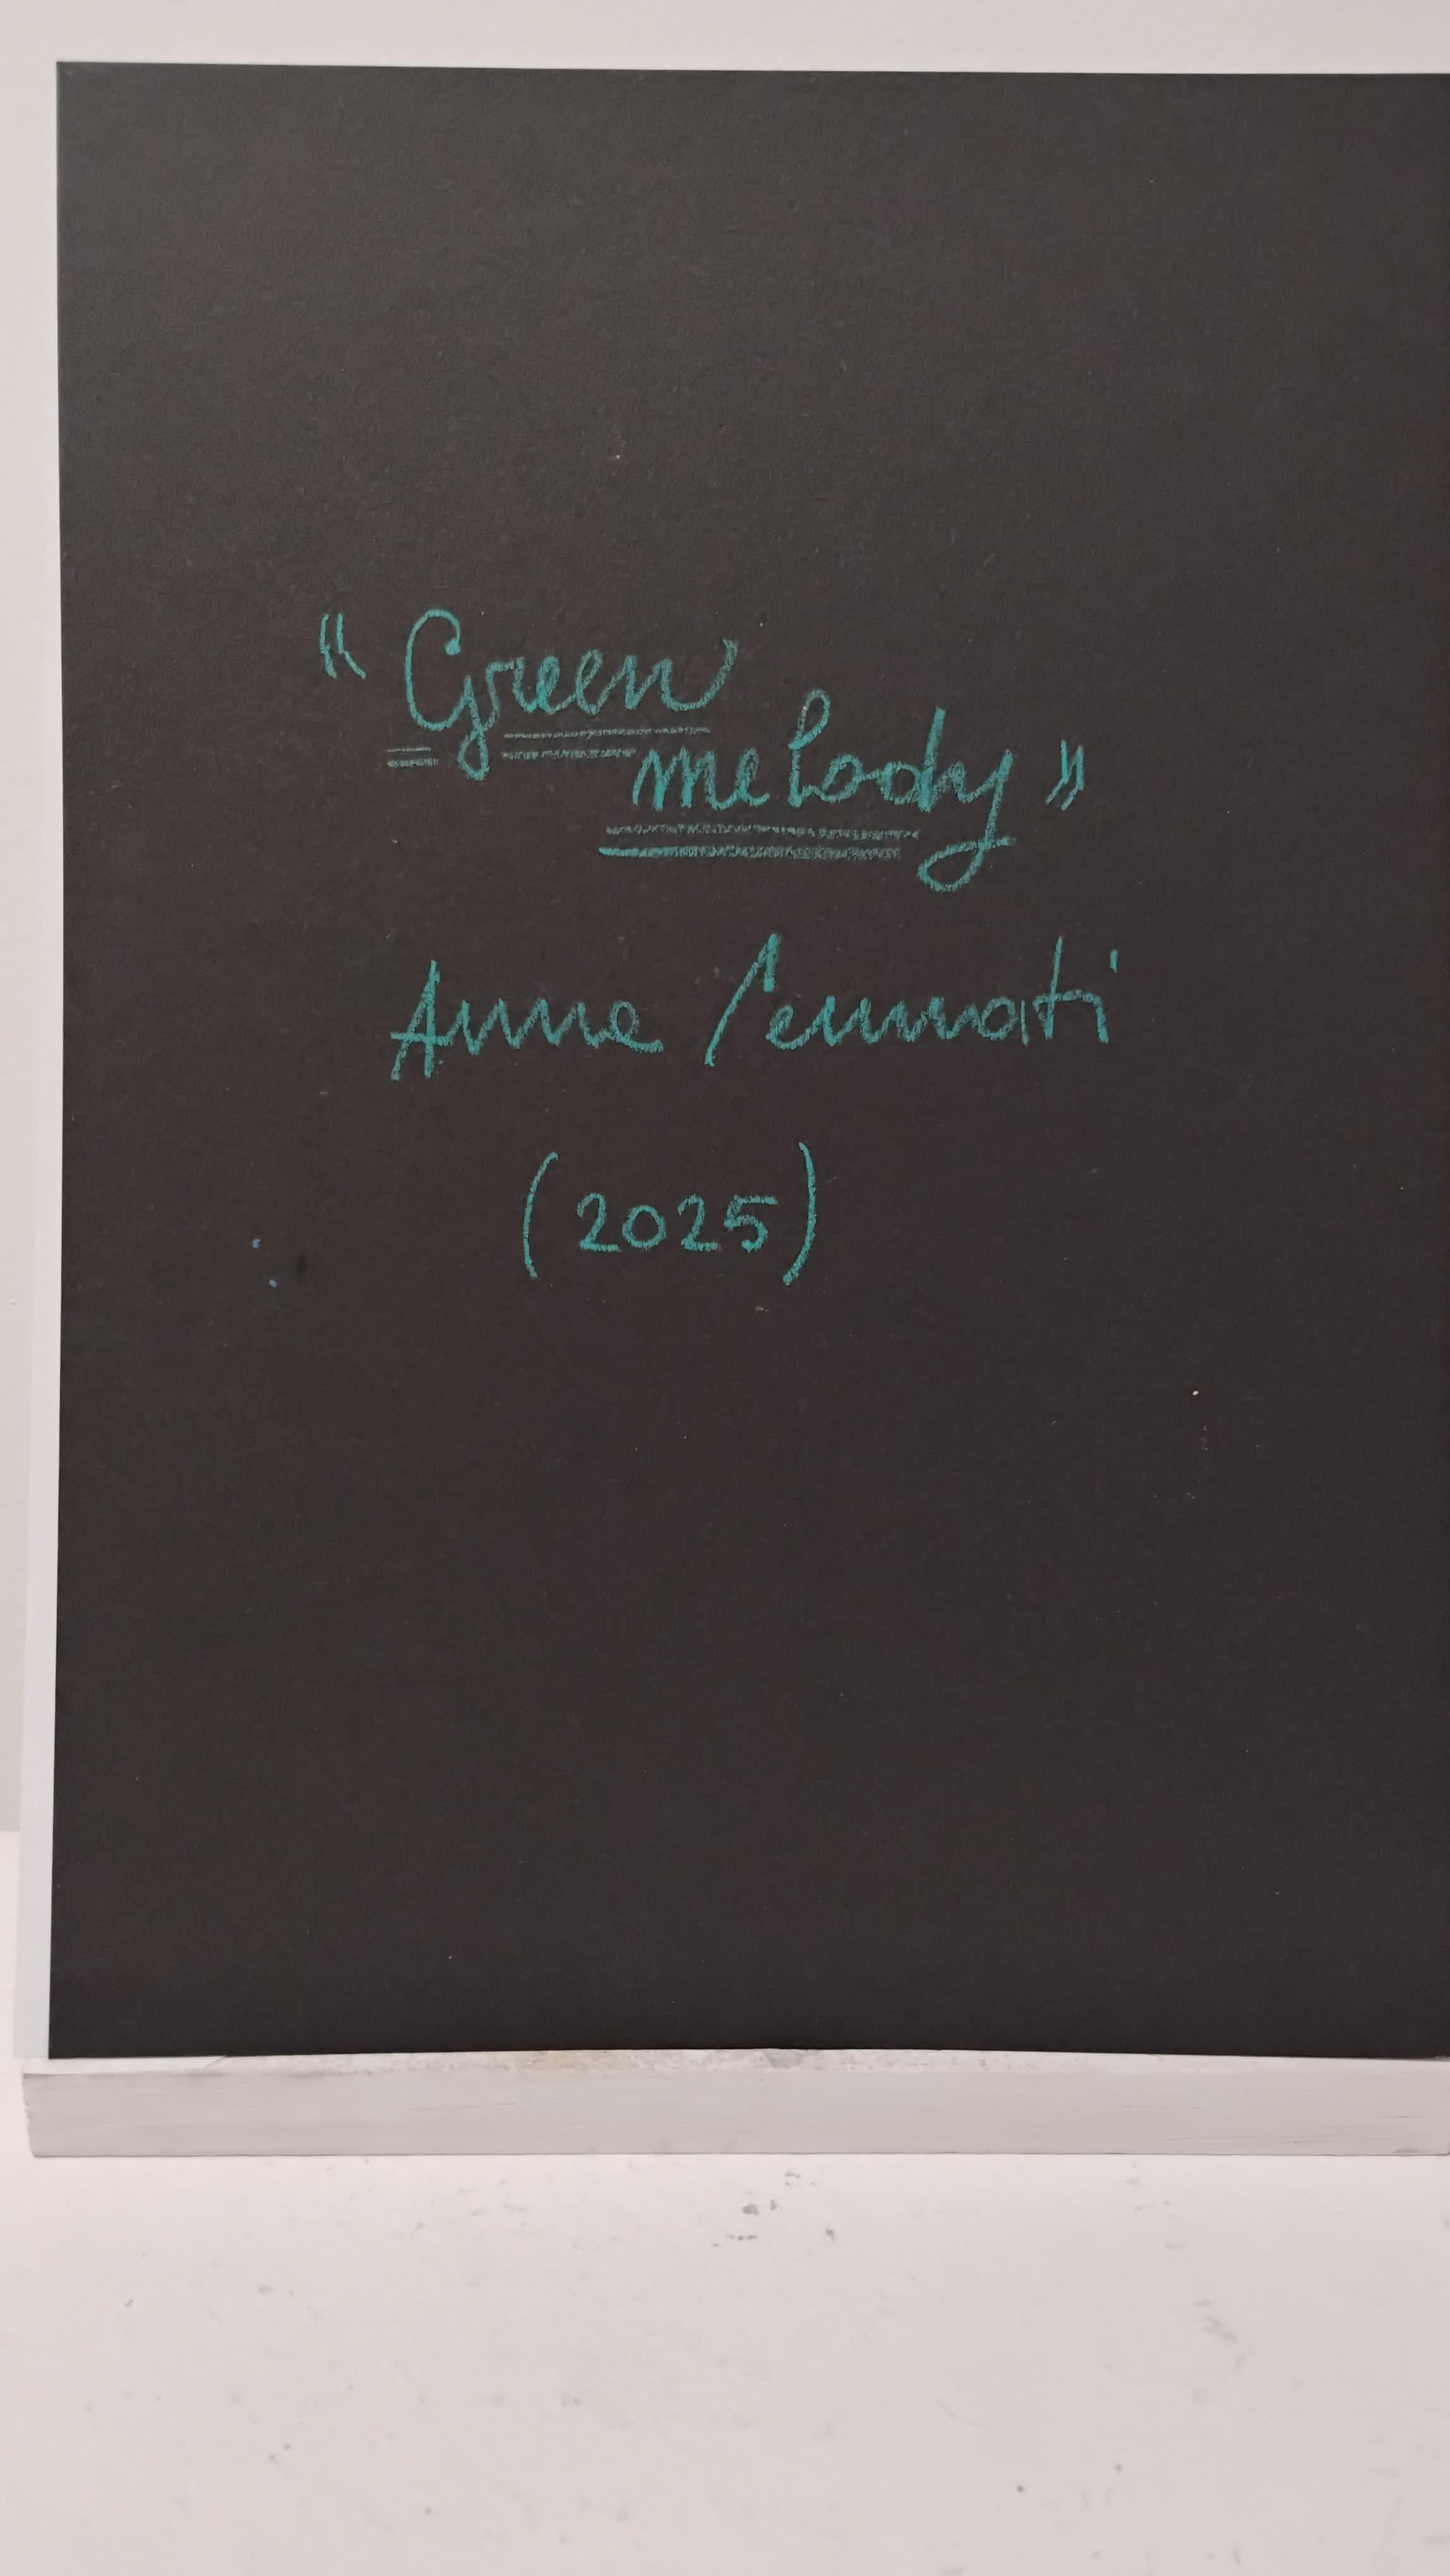 "Green
melody"
Anna Cennati
(2025)